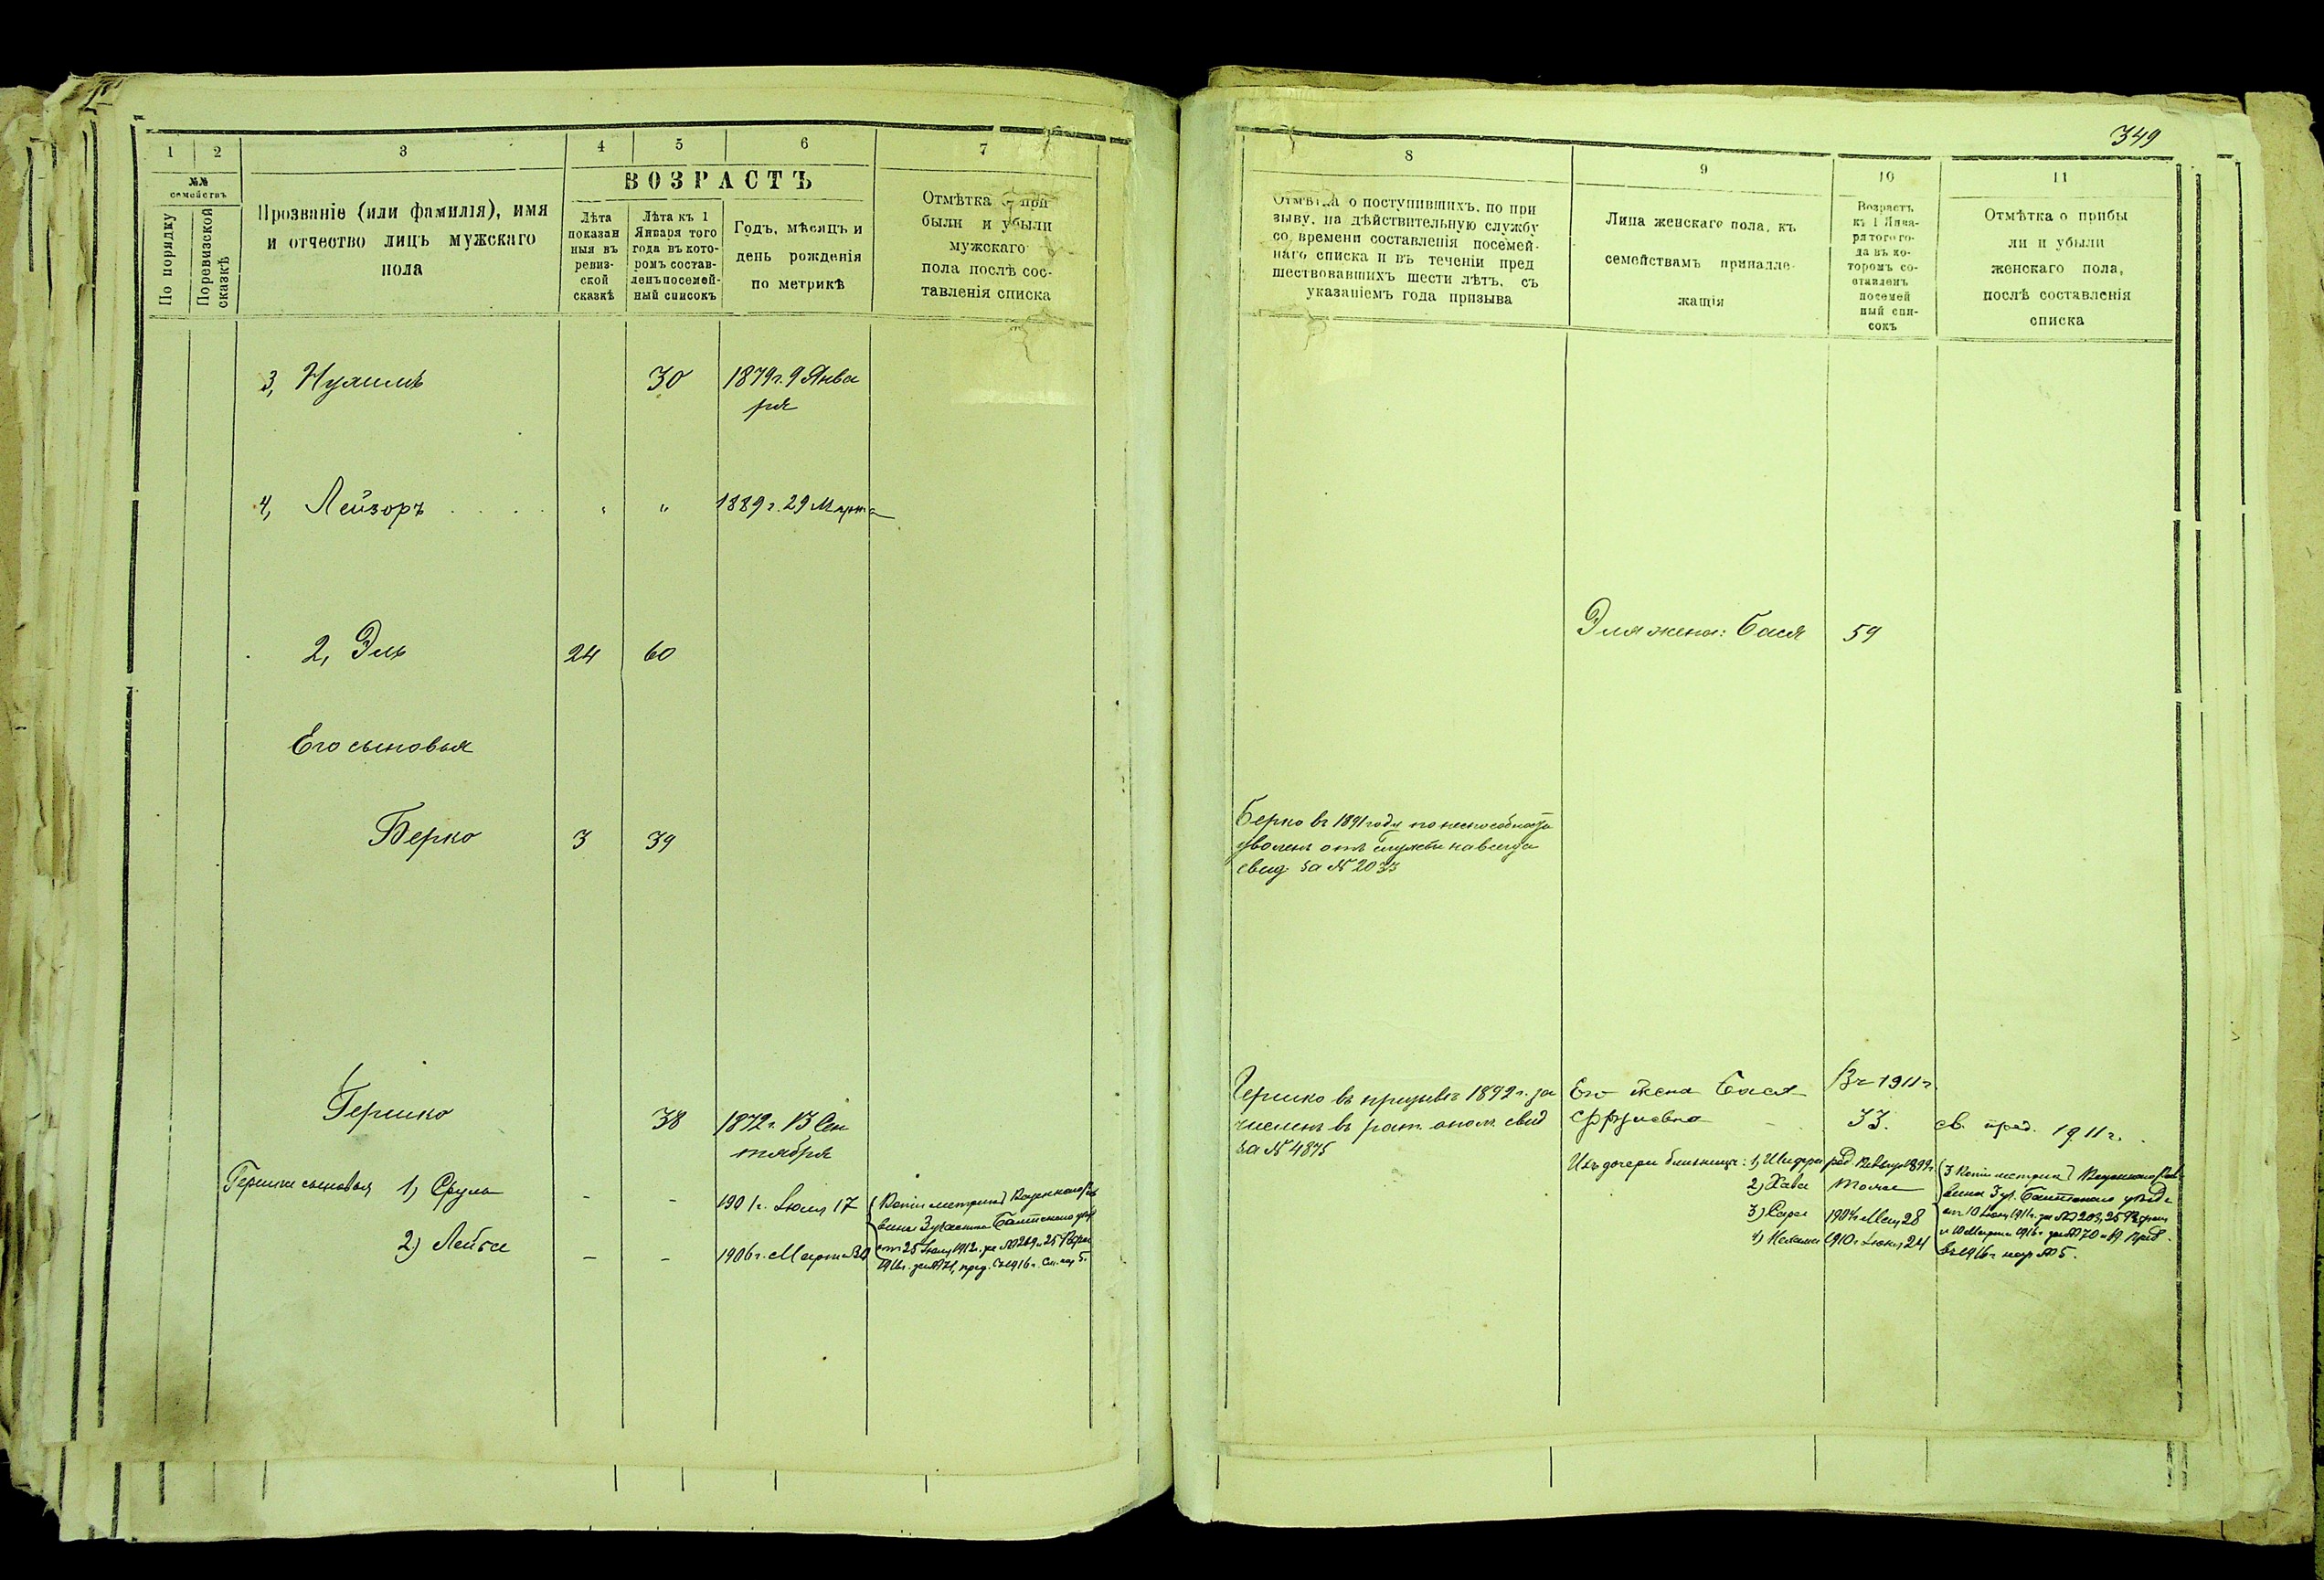 1
2
3
4
5
6
7
№№
семействъ
По порядку
Поревизской
сказкѣ
Прозваніе (или фамилія), имя
и отчество лицъ мужскаго
пола
ВОЗРАСТЪ
Лѣта
показан
ныя въ
ревиз-
ской
сказкѣ
Лѣта къ 1
Января того
года въ кото-
ромъ состав-
ленъ посемей-
ный списокъ
Годъ, мѣсяцъ и
день рожденія
по метрикѣ
Отмѣтка о при
были и убыли
мужскаго
пола послѣ сос-
тавленія списка
3, Нухимъ 30 1879 г. 9 Янва
ря
4, Лейзоръ . . . . " " 1889 г. 29 Марта
2, Эль 24 60
Его сыновья
Берко 3 39
Гершко 38 1872 г. 13 Сен
тября
Гершки сыновья 1) Сруль - - 1901 г. Іюля 17
2) Лейба - - 1906 г. Марта 30
Копіи метрикъ Казеннаго Рав
вина 3 участка Балтскаго уѣз
от 25 Іюля 1912 г. за № 269 и 25
1916 г. за № 71, пред. въ 1916 г. см. нар 5.
349
8
9
10
11
Отмѣтка о поступившихъ, по при
зыву, на дѣйствительную службу
со времени составленія посемей-
наго списка и въ теченіи пред
шествовавшихъ шести лѣтъ, съ
указаніемъ года призыва
Лица женскаго пола, къ
семействамъ принадле-
жащія
Возрастъ
къ 1 Янва-
ря того го-
да въ ко-
торомъ со-
ставленъ
посемей
ный спи-
сокъ
Отмѣтка о прибы
ли и убыли
женскаго пола,
послѣ составленія
списка
Эля жена: Бася 59
Берко въ 1891 году по неспособности
уволенъ отъ службы навсегда
свид за № 2033
Гершко въ призывъ 1892 г. за
численъ въ рат. опол. свид
за № 4875
Его жена Бася
Сруlевна
Въ 1911 г.
33.
св. пред. 1911 г.
Ихъ дочери близнецы: 1) Шифра род. 1899 г.
2) Хава Тоже
3) Сара 1904 г. Мая 28
4) Нехама 1910 г. Іюня 24
3 Копіи метрикъ Казеннаго Рав-
вина 3 уч. Балтскаго уѣзда
от 10 Іюля 1911 г. за № 203, 25
и 10 Марта 1916 г. за № 70 и 69 пред.
въ 1916 г. нар № 5.